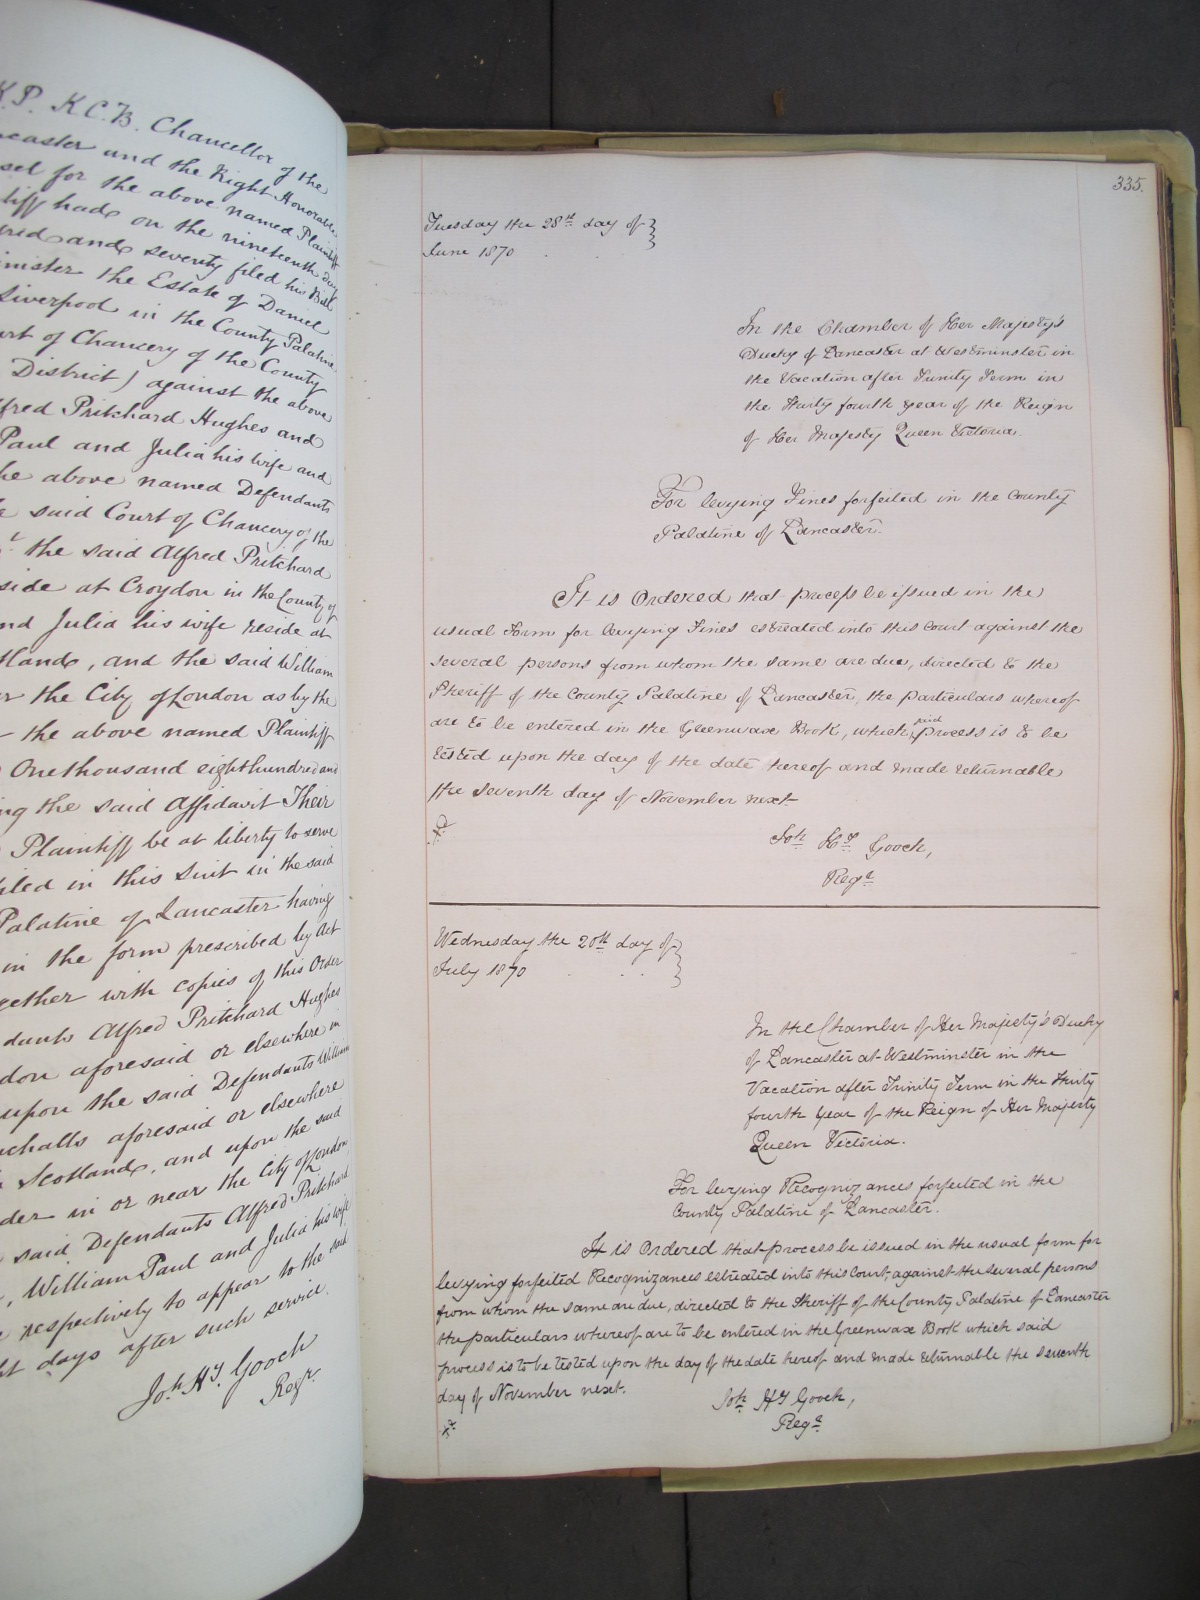 K.P. K.C.B. Chancellor of the
ncaster and the Right Honorable
sel for the above named Plaintiff
tiff had on the nineteenth day
red and seventy filed his Bill
inister the Estate of Daniel
Liverpool in the County Palatine
urt of Chancery of the County
District) against the above
fred Pritchard Hughes and
Paul and Julia his wife and
he above named Defendants
said Court of Chancery of the
the said Alfred Pritchard
side at Croydon in the County of
nd Julia his wife reside at
tland, and the said William
r the City of London as by the
the above named Plaintiff
One thousand eight hundred and
ng the said Affidavit Their
Plaintiff be at liberty to serve
iled in this Suit in the said
Palatine of Lancaster having
in the form prescribed by Act
gether with copies of this Order
dants Alfred Pritchard Hughes
don aforesaid or elsewhere in
upon the said Defendants William
uchalls aforesaid or elsewhere
Scotland, and upon the said
der in or near the City of London
said Defendants Alfred Pritchard
, William Paul and Julia his wife
respectively to appear to the said
ht days after such service.
Joh. Hy. Gooch
Regr.
335.
Tuesday the 28th day of
June 1870
In the Chamber of Her Majesty's
Duchy of Lancaster at Westminster in
the Vacation after Trinity Term in
the thirty fourth year of the Reign
of Her Majesty Queen Victoria
For levying Fines forfeited in the County
Palatine of Lancaster.
It is Ordered that process be issued in the
usual Form for levying Fines estreated into this Court against the
several persons from whom the same are due, directed to the
Sheriff of the County Palatine of Lancaster, the particulars whereof
are to be entered in the Greenwax Book, which said process is to be
tested upon the day of the date hereof and made returnable
the seventh day of November next
Joh Hy Gooch,
Regr
Wednesday the 20th day of
July 1870
In the Chamber of Her Majesty's Duchy
of Lancaster at Westminster in the
Vacation after Trinity Term in the thirty
fourth Year of the Reign of Her Majesty
Queen Victoria.
For levying Recognizances forfeited in the
County Palatine of Lancaster.
It is Ordered that process be issued in the usual form for
levying forfeited Recognizances estreated into this Court, against the several persons
from whom the same are due, directed to the Sheriff of the County Palatine of Lancaster
the particulars whereof are to be entered in the Greenwax Book which said
process is to be tested upon the day of the date hereof and made returnable the seventh
day of November next.
Joh Hy Gooch,
Regr